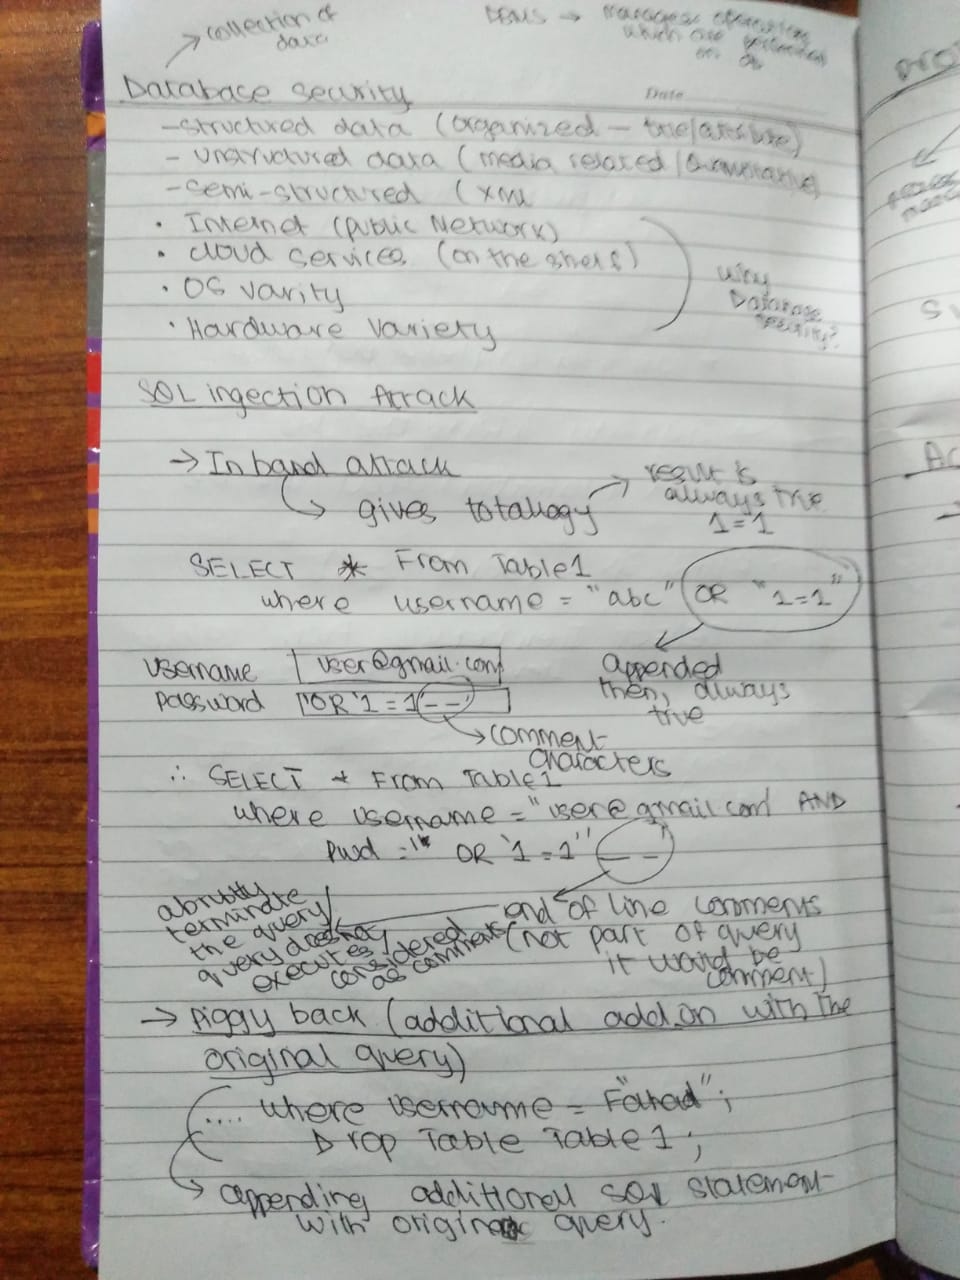 → collection of
data
DBMS → manages operations
which are performed
on db
Database security
Date
-structured data (organized - true/attribute)
- unstructured data (media related /
-semi-structured (XML
· Internet (public Network)
· cloud services (on the shelf)
· OS varity
· Hardware Variety
why
Database
security?
SQL ingection Attack
→ In band attack
gives totallogy
→ result is
always true
1=1
SELECT * From Table1
where username = "abc" OR "1=1"
appended
then, always
true
username user@gmail.com
password 'OR '1 = 1 --'
→ comment
characters
∴ SELECT * From Table1
where username = "user@gmail.com AND
Pwd = '" OR '1 = 1'' -- "
end of line comments
(not part of query
it would be
comment)
abruttly
terminate
the query/
query does not
executes/
considered
as comments
→ Piggy back (additional add on with the
original query)
.... where username = "Fahad";
Drop Table Table1;
→ appending additional SQL statement
with original query.